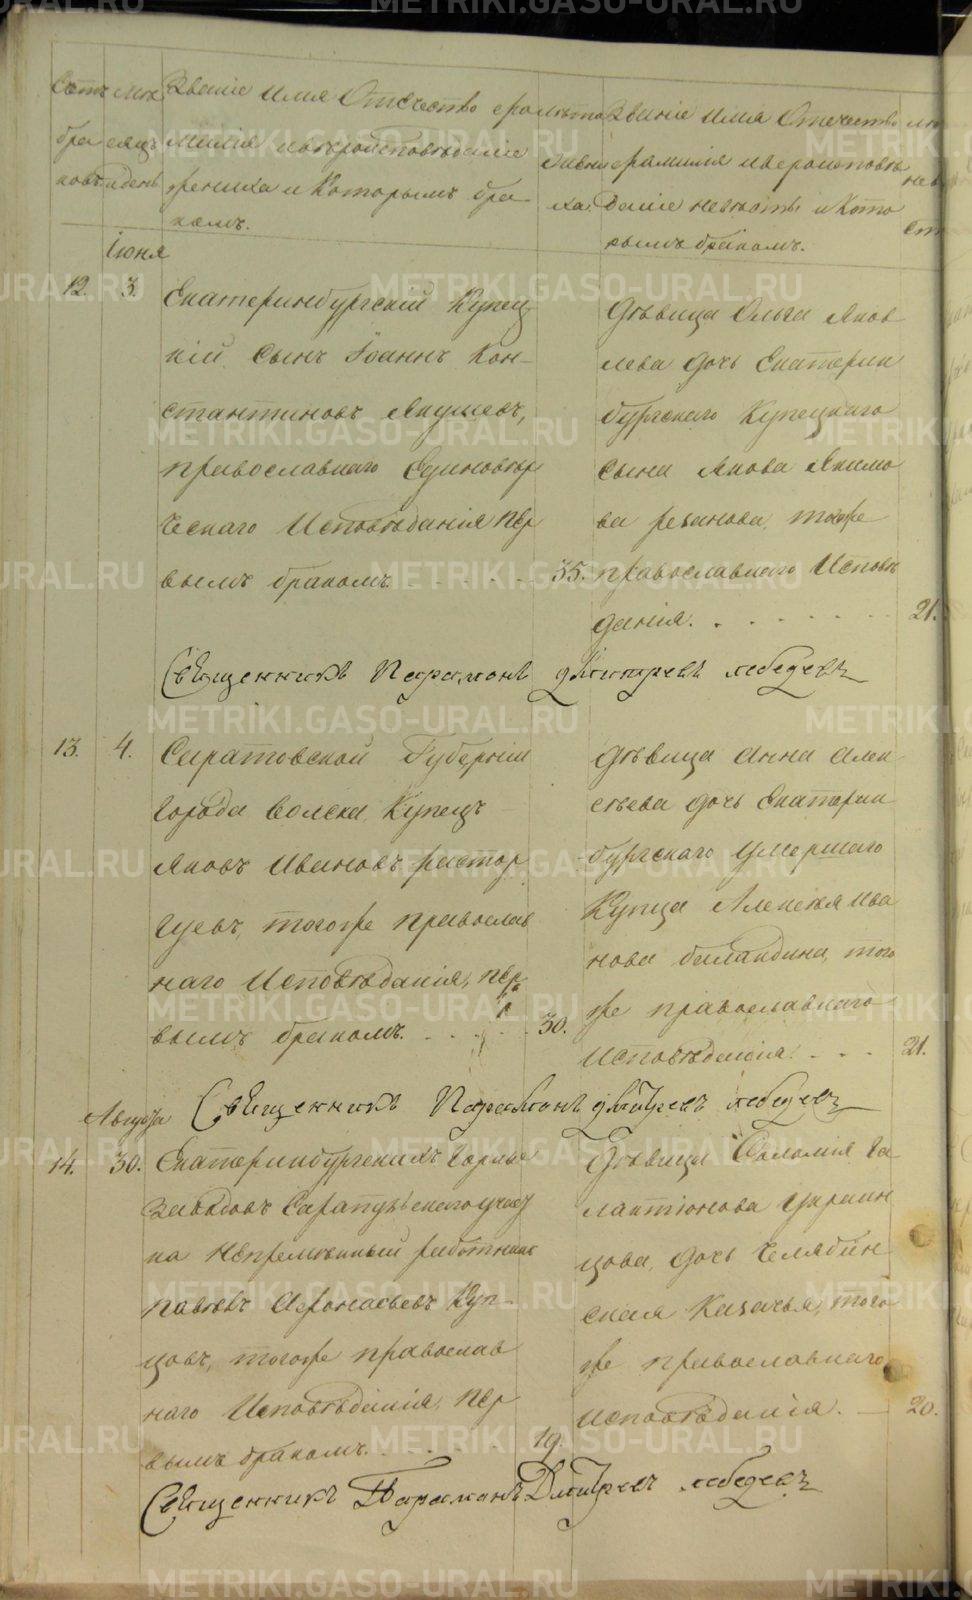 Счетъ
бра
ковъ
Мѣ
сяцъ
и день
Званіе Имя Отчество фа
милія и вѣроисповѣданіе
жениха и Которымъ бра
комъ.
лѣта
жениха
Званіе имя Отечество
фамилія и вероисповѣ
даніе невѣсты и Кото
рымъ бракомъ.
Іюня
12.
3.
Екатеринбургскій Купец
кій сынъ Іоаннъ Кон-
стантиновъ Якушевъ,
православнаго Единовѣр
ческаго Исповѣданія пер
вымъ бракомъ.
35.
Дѣвица Ольга Яков
лева дочь Екатерин
бургскаго Купецкаго
сына Якова Якимо
ва резанова, тогоже
православнаго Исповѣ
данія.
21.
Священникъ Парамонъ дмитревъ лебедевъ
13.
4.
Саратовской Губерніи
города Волска Купецъ
Яковъ Ивановъ растор
гуевъ, тогоже православ
наго Исповѣданія, пер
вымъ бракомъ.
30.
Дѣвица Анна Алек
сѣева дочь Екатерин
бургскаго умершаго
Купца Алексѣя Ива
нова баландина, того
же православнаго
исповѣданія.
21.
Священникъ Парамонъ дмитревъ лебедевъ
Августа
14.
30.
Екатеринбургскихъ Горныхъ
заводовъ Сарапульского уезд
на Непремѣнный работникъ
Павелъ Афонасьевъ Куп-
цовъ, тогоже православ
наго Исповѣданія, пер
вымъ бракомъ.
19.
Дѣвица Соломія Га
лактіонова Украин
цова, дочь Челябин
ская Казачья, того
же православнаго
исповѣданія.
20.
Священникъ Парамонъ Дмитревъ лебедевъ
METRIKI.GASO-URAL.RU